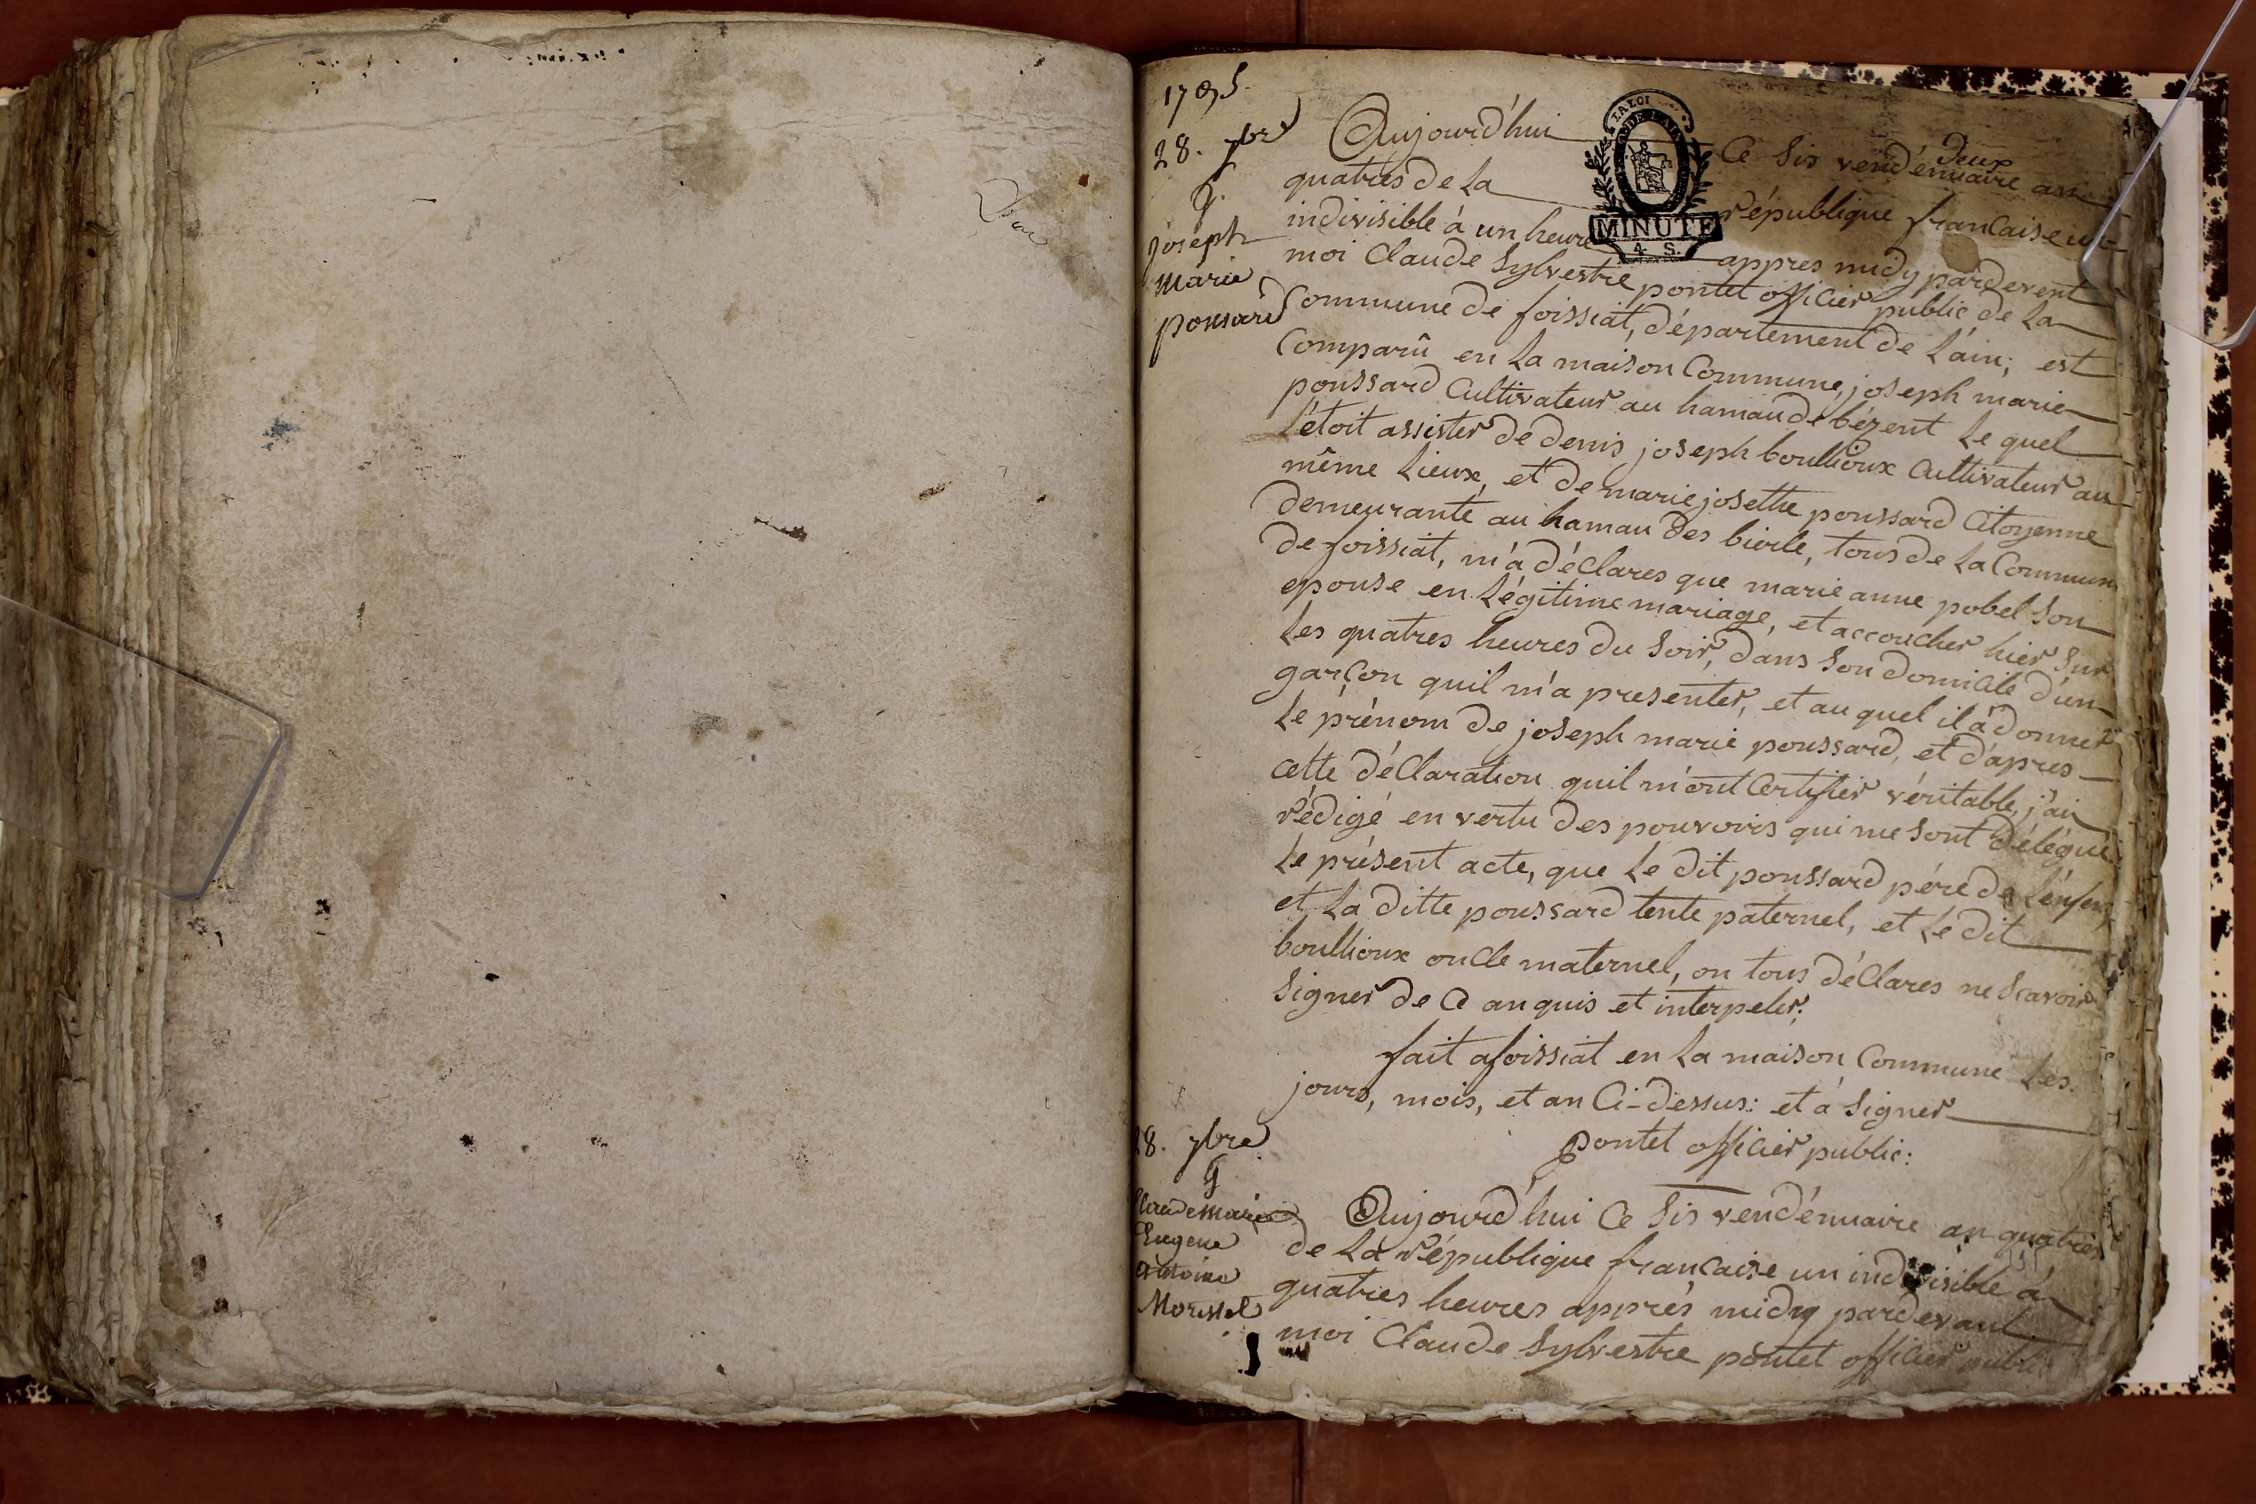 1795.
28. 7bre
g.
joseph
marie
poussard
LA LOI
MINUTE
4. S.
deux
Aujourd'hui Ce sis vendémiaire an
quatres de La république francaise un
indivisible à un heure appres midy pardevent
moi Claude Sylvestre pontet officier public de La
Commune de foissiat, département de L'ain; est
Comparû en La maison Commune, joseph marie
poussard Cultivateur au hamau de bézent Le quel
s'étoit assister de denis joseph boullioux Cultivateur au
même Lieux, et de marie josethe poussard Citoyenne
demeurante au hamau des bierle, tous de La Commune
de foissiat, m'a déClares que marie anne pobel son
epouse en Légitime mariage, et accoucher hier sur
Les quatres heures du soir, dans son domicile d'un
garçon quil m'a presenter, et au quel il à donner
Le prénom de joseph marie poussard, et d'apres
cette déClaration quil m'ont Certifier véritable, j'ai
rédigé en vertu des pouvoirs qui me sont délégué
Le présent acte, que Le dit poussard pére de L'enfent,
et La ditte poussard tente paternel, et Le dit
boullioux oncle maternel, on tous déClares ne scavoir
signer de Ce anquis et interpeler;
fait a foissiat en La maison Commune Les
jours, mois, et an Ci-dessus: et à signer
pontet officier public:
28. 7bre
g
Claude marie
Eugene
antoine
Morissel
Aujourd'hui Ce sis vendémiaire an quatres
de La république francaise un indivisible à
quatres heures apprés midy pardevant
moi Claude Sylvestre pontet officier public